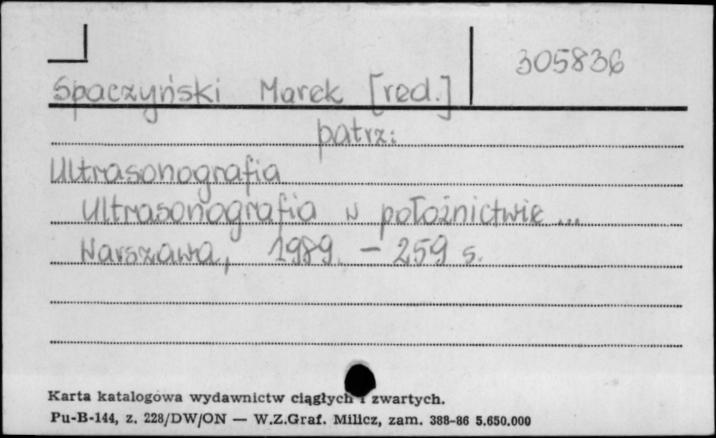 305836
Spaczyński Marek [red.]
patrz:
Ultrasonografia
Ultrasonografia w położnictwie ...
Warszawa, 1989. - 259 s.
Karta katalogowa wydawnictw ciągłych i zwartych.
Pu-B-144, z. 228/DW/ON — W.Z.Graf. Milicz, zam. 388-86 5.650.000